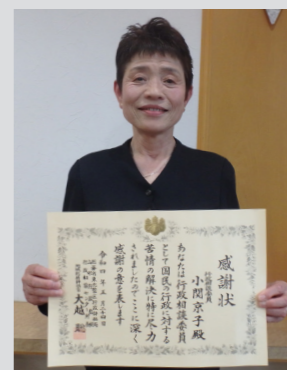 感謝状
行政相談委員
小間京子殿
あなたは行政相談委員
として国民の行政に対する
苦情の解決に特に尽力
されましたのでここに深く
感謝の意を表します
令和四年五月二十四日
大越